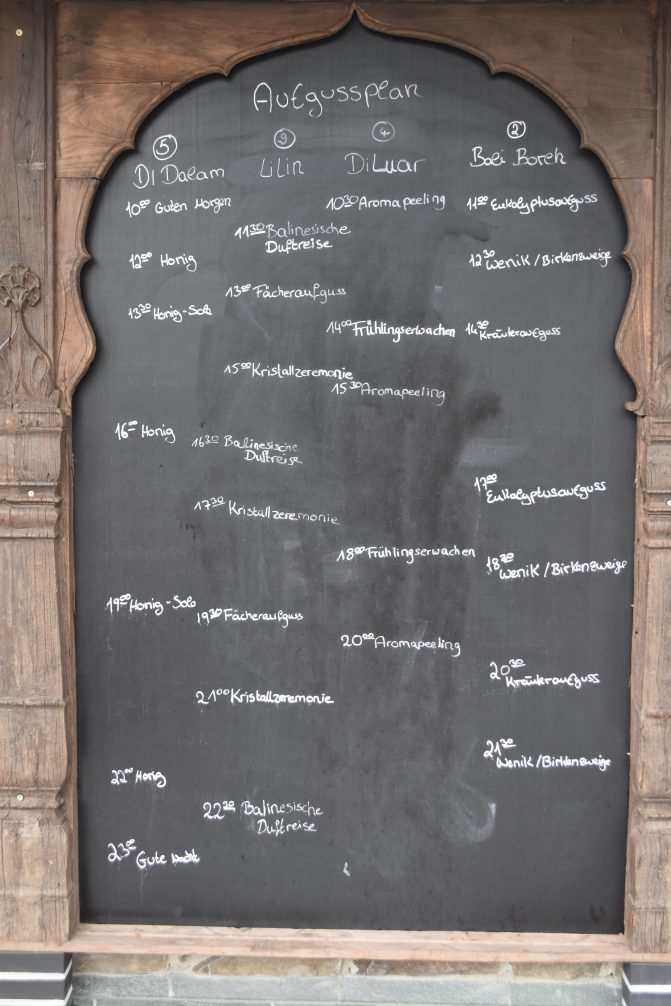 Aufgussplan
5 3 4 2
Di Dalam Lilin DiLuar BoliBoreh
10⁰⁰ Guten Morgen
10³⁰ Aromapeeling
11⁰⁰ Eukalyptusaufguss
11³⁰ Balinesische
Duftreise
12⁰⁰ Honig
12³⁰ Wenik/Birkenzweige
13⁰⁰ Fächeraufguss
13³⁰ Honig-Solz
14⁰⁰ Frühlingserwachen
14³⁰ Kräuteraufguss
15⁰⁰ Kristallzeremonie
15³⁰ Aromapeeling
16⁰⁰ Honig
16³⁰ Balinesische
Duftreise
17⁰⁰
Eukalyptusaufguss
17³⁰ Kristallzeremonie
18⁰⁰ Frühlingserwachen
18³⁰
Wenik/Birkenzweige
19⁰⁰ Honig-Solz
19³⁰ Fächeraufguss
20⁰⁰ Aromapeeling
20³⁰
Kräuteraufguss
21⁰⁰ Kristallzeremonie
21³⁰
Wenik/Birkenzweige
22⁰⁰ Honig
22³⁰ Balinesische
Duftreise
23⁰⁰ Gute Nacht